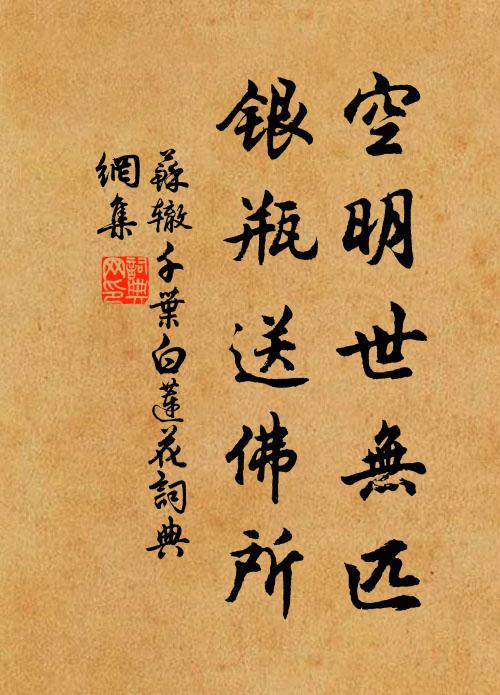 空明世無匹
銀瓶送佛所
蘇辙千葉白蓮花詞典
網集
詞典
网印